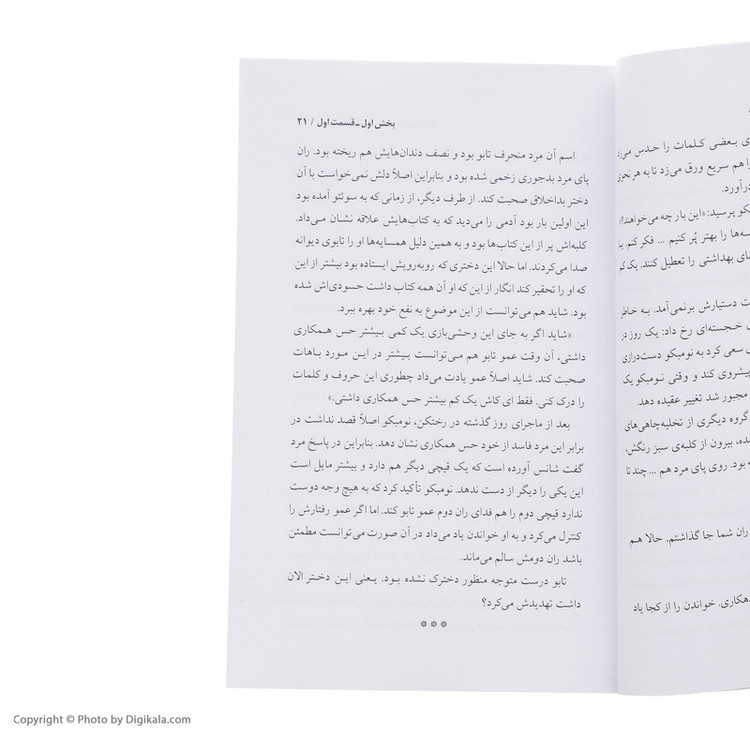 ی بعضی کلمات را حدس می‌زد
را هم سریع ورق می‌زد تا به هر نحوی
درآورد.
کو پرسید: «این بار چه می‌خواهند؟
سه‌ها را بهتر پُر کنیم ... فکر کنم با
ای بهداشتی را تعطیل کنند. یک کم
ت دستیارش برنمی‌آمد. به خاطر
خجسته‌ای رخ داد: یک روز در
سعی کرد به نومبکو دست‌درازی
پیشروی کند و وقتی نومبکو یک
مجبور شد تغییر عقیده دهد.
گروه دیگری از تخلیه‌چاهی‌های
ده، بیرون از کلبه‌ی سبز رنگش،
ه بود. روی پای مرد هم ... چند تا
ران شما جا گذاشتم. حالا هم
دهکاری. خواندن را از کجا یاد
بخش اول ـ قسمت اول / ۲۱
اسم آن مرد منحرف تابو بود و نصف دندان‌هایش هم ریخته بود. ران
پای مرد بدجوری زخمی شده بود و بنابراین اصلاً دلش نمی‌خواست با آن
دختر بداخلاق صحبت کند. از طرف دیگر، از زمانی که به سوئتو آمده بود
این اولین بار بود آدمی را می‌دید که به کتاب‌هایش علاقه نشان می‌داد.
کلبه‌اش پر از این کتاب‌ها بود و به همین دلیل همسایه‌ها او را تابوی دیوانه
صدا می‌کردند. اما حالا این دختری که روبه‌رویش ایستاده بود بیشتر از این
که او را تحقیر کند انگار از این که او آن همه کتاب داشت حسودی‌اش شده
بود. شاید هم می‌توانست از این موضوع به نفع خود بهره ببرد.
«شاید اگر به جای این وحشی‌بازی یک کمی بیشتر حس همکاری
داشتی، آن وقت عمو تابو هم می‌توانست بیشتر در این مورد باهات
صحبت کند. شاید اصلاً عمو یادت می‌داد چطوری این حروف و کلمات
را درک کنی. فقط ای کاش یک کم بیشتر حس همکاری داشتی.»
بعد از ماجرای روز گذشته در رختکن، نومبکو اصلاً قصد نداشت در
برابر این مرد فاسد از خود حس همکاری نشان دهد. بنابراین در پاسخ مرد
گفت شانس آورده است که یک قیچی دیگر هم دارد و بیشتر مایل است
این یکی را دیگر از دست ندهد. نومبکو تأکید کرد که به هیچ وجه دوست
ندارد قیچی دوم را هم فدای ران دوم عمو تابو کند. اما اگر عمو رفتارش را
کنترل می‌کرد و به او خواندن یاد می‌داد در آن صورت می‌توانست مطمئن
باشد ران دومش سالم می‌ماند.
تابو درست متوجه منظور دخترک نشده بود. یعنی این دختر الان
داشت تهدیدش می‌کرد؟
Copyright © Photo by Digikala.com